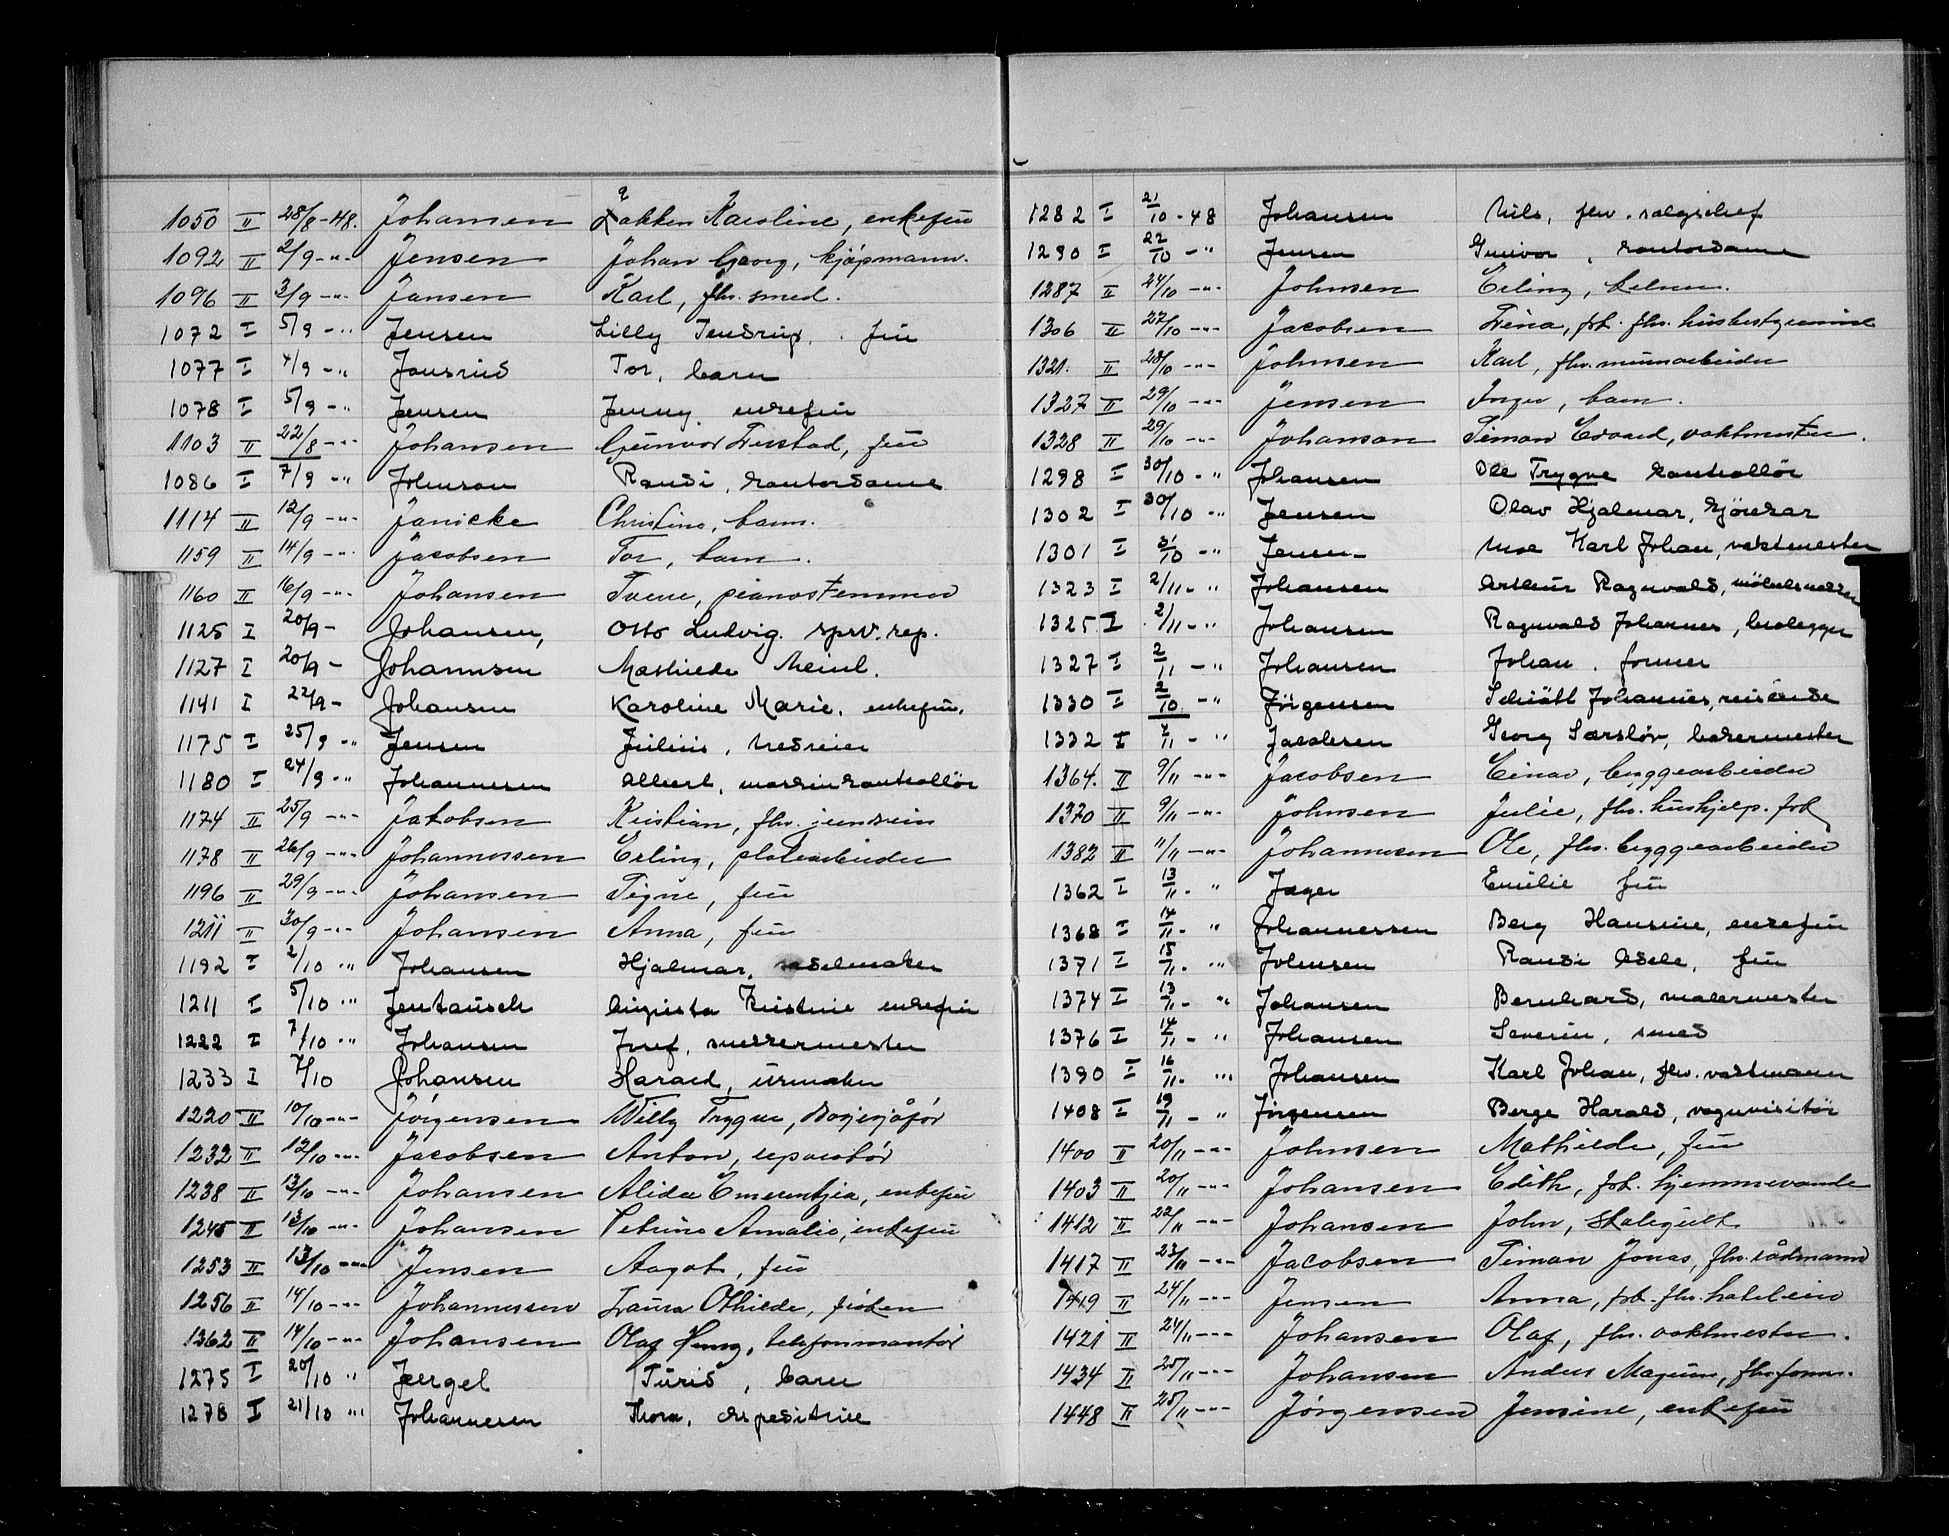 1050 II 28/8-48. Johansen Bakken Karoline, enkefru
1092 II 2/9 -"- Jensen Johan Georg, kjøpmann.
1096 II 3/9 -"- Jansen Karl, fhv. smed.
1072 I 5/9 -"- Jensen Lilly Tendrup, fru
1077 I 4/9 -"- Jonsrud Tor, barn
1078 I 5/9 -"- Jensen Jenny, enkefru
1103 II 22/8 -"- Johansen Gunvor Furstad, fru
1086 I 7/9 -"- Johnson Randi, kontordame
1114 II 12/9 -"- Janicke Christine, barn.
1159 II 14/9 -"- Jacobsen Tor, barn.
1160 II 16/9 -"- Johansen Sverre, pianostemmer
1125 I 20/9 - Johansen, Otto Ludvig. sprv. rep.
1127 I 20/9 - Johannsen Mathilde Meinl.
1141 I 22/9 - Johansen Karoline Marie, enkefru.
1175 I 25/9 -"- Jensen Julius, vedreier
1180 I 24/9 -"- Johannesen Albert, maskinkontrollør
1174 II 25/9 -"- Jakobsen Kristian, fhv.
1178 II 26/9 -"- Johannessen Erling, platearbeider
1196 II 29/9 -"- Johansen Signe, fru
1211 II 30/9 -"- Johansen Anna, fru
1192 I 2/10 -"- Johansen Hjalmar, sadelmaker
1211 I 5/10 -"- Jentausch Augusta Kristine enkefru
1222 I 7/10 -"- Johansen Josef, snekkermester
1233 I 7/10 Johansen Harald, urmaker
1220 II 10/10 -"- Jørgensen Willy Trygve,
1232 II 12/10 -"- Jacobsen Anton, reparatør
1238 II 13/10 -"- Johansen Alida Emerentzia, enkefru
1245 II 13/10 -"- Johansen Petrine Amalie, enkefru
1253 II 13/10 -"- Jensen Aagot, fru
1256 II 14/10 -"- Johannessen Laura Othilde, frøken
1362 II 14/10 -"- Johansen Olaf Henry, telefonmontør
1275 I 20/10 " Jærgel Turid, barn
1278 I 21/10 "' Johannesen Thora, ekspeditrise
1282 I 21/10 -48 Johansen Nils, fhv. salgschef
1290 I 22/10 -" Jensen Gunvor, kontordame
1287 II 24/10 -"- Johnsen Erling, kelner.
1306 II 27/10 -"- Jacobsen Trina, frk. fhv. husbestyrerinne
1321. II 28/10 -"- Johnsen Karl, fhv. murarbeider
1327 II 29/10 -"- Jensen Inger, barn.
1328 II 29/10 -"- Johanson Simon Edvard, vaktmester.
1298 I 30/10 -" Johansen Ole Trygve kontrollør
1302 I 30/10 -" Jensen Olav Hjalmar, kjørekar
1301 I 31/10 -" Jensen Moe Karl Johan, vaktmester
1323 I 2/11 -" Johansen Arthur Ragnvald, møbelsnekker
1325 I 2/11 -" Johansen Ragnvald Johannes, brolegger
1327 I 2/11 -" Johansen Johan, former
1330 I 2/10 -" Jörgensen Schiött Johannes, reisende
1332 I 4/11 -" Jacobsen Georg Særsløv, bakermester
1364. II 9/11 -"- Jacobsen Einar, byggearbeider
1370 II 9/11 -"- Johnsen Julie, fhv. hushjelp. frk
1382 II 11/11 -"- Johannesen Ole, fhv. byggearbeider
1362 I 13/11 -" Jæger Emilie fru
1368 I 14/11 -" Johannessen Berg Hansine, enkefru
1371 I 15/11 -" Johnsen Randi Adele, fru
1374 I 13/11 -" Johansen Bernhard, malermester
1376 I 14/11 -" Johansen Severin, smed
1390 I 16/11 -" Johansen Karl Johan, fhv. vaktmann
1408 I 19/11 -" Jørgensen Berge Harald, vognvisitør
1400 II 20/11 -"- Johnsen Mathilde, fru
1403 II 20/11 -"- Johansen Edith, frk. hjemmeværende
1412 II 22/11 -"- Johansen John, skolegutt
1417 II 23/11 -"- Jacobsen Simon Jonas, fhv. rådmann
1419 II 24/11 -"- Jensen Anna, frk. fhv. hoteleier
1421 II 24/11 -"- Johansen Olaf, fhv. vaktmester.
1434 II 25/11 -"- Johansen Anders Magnus, fhv. form.
1448 II 25/11 -"- Jørgensen Jensine, enkefru